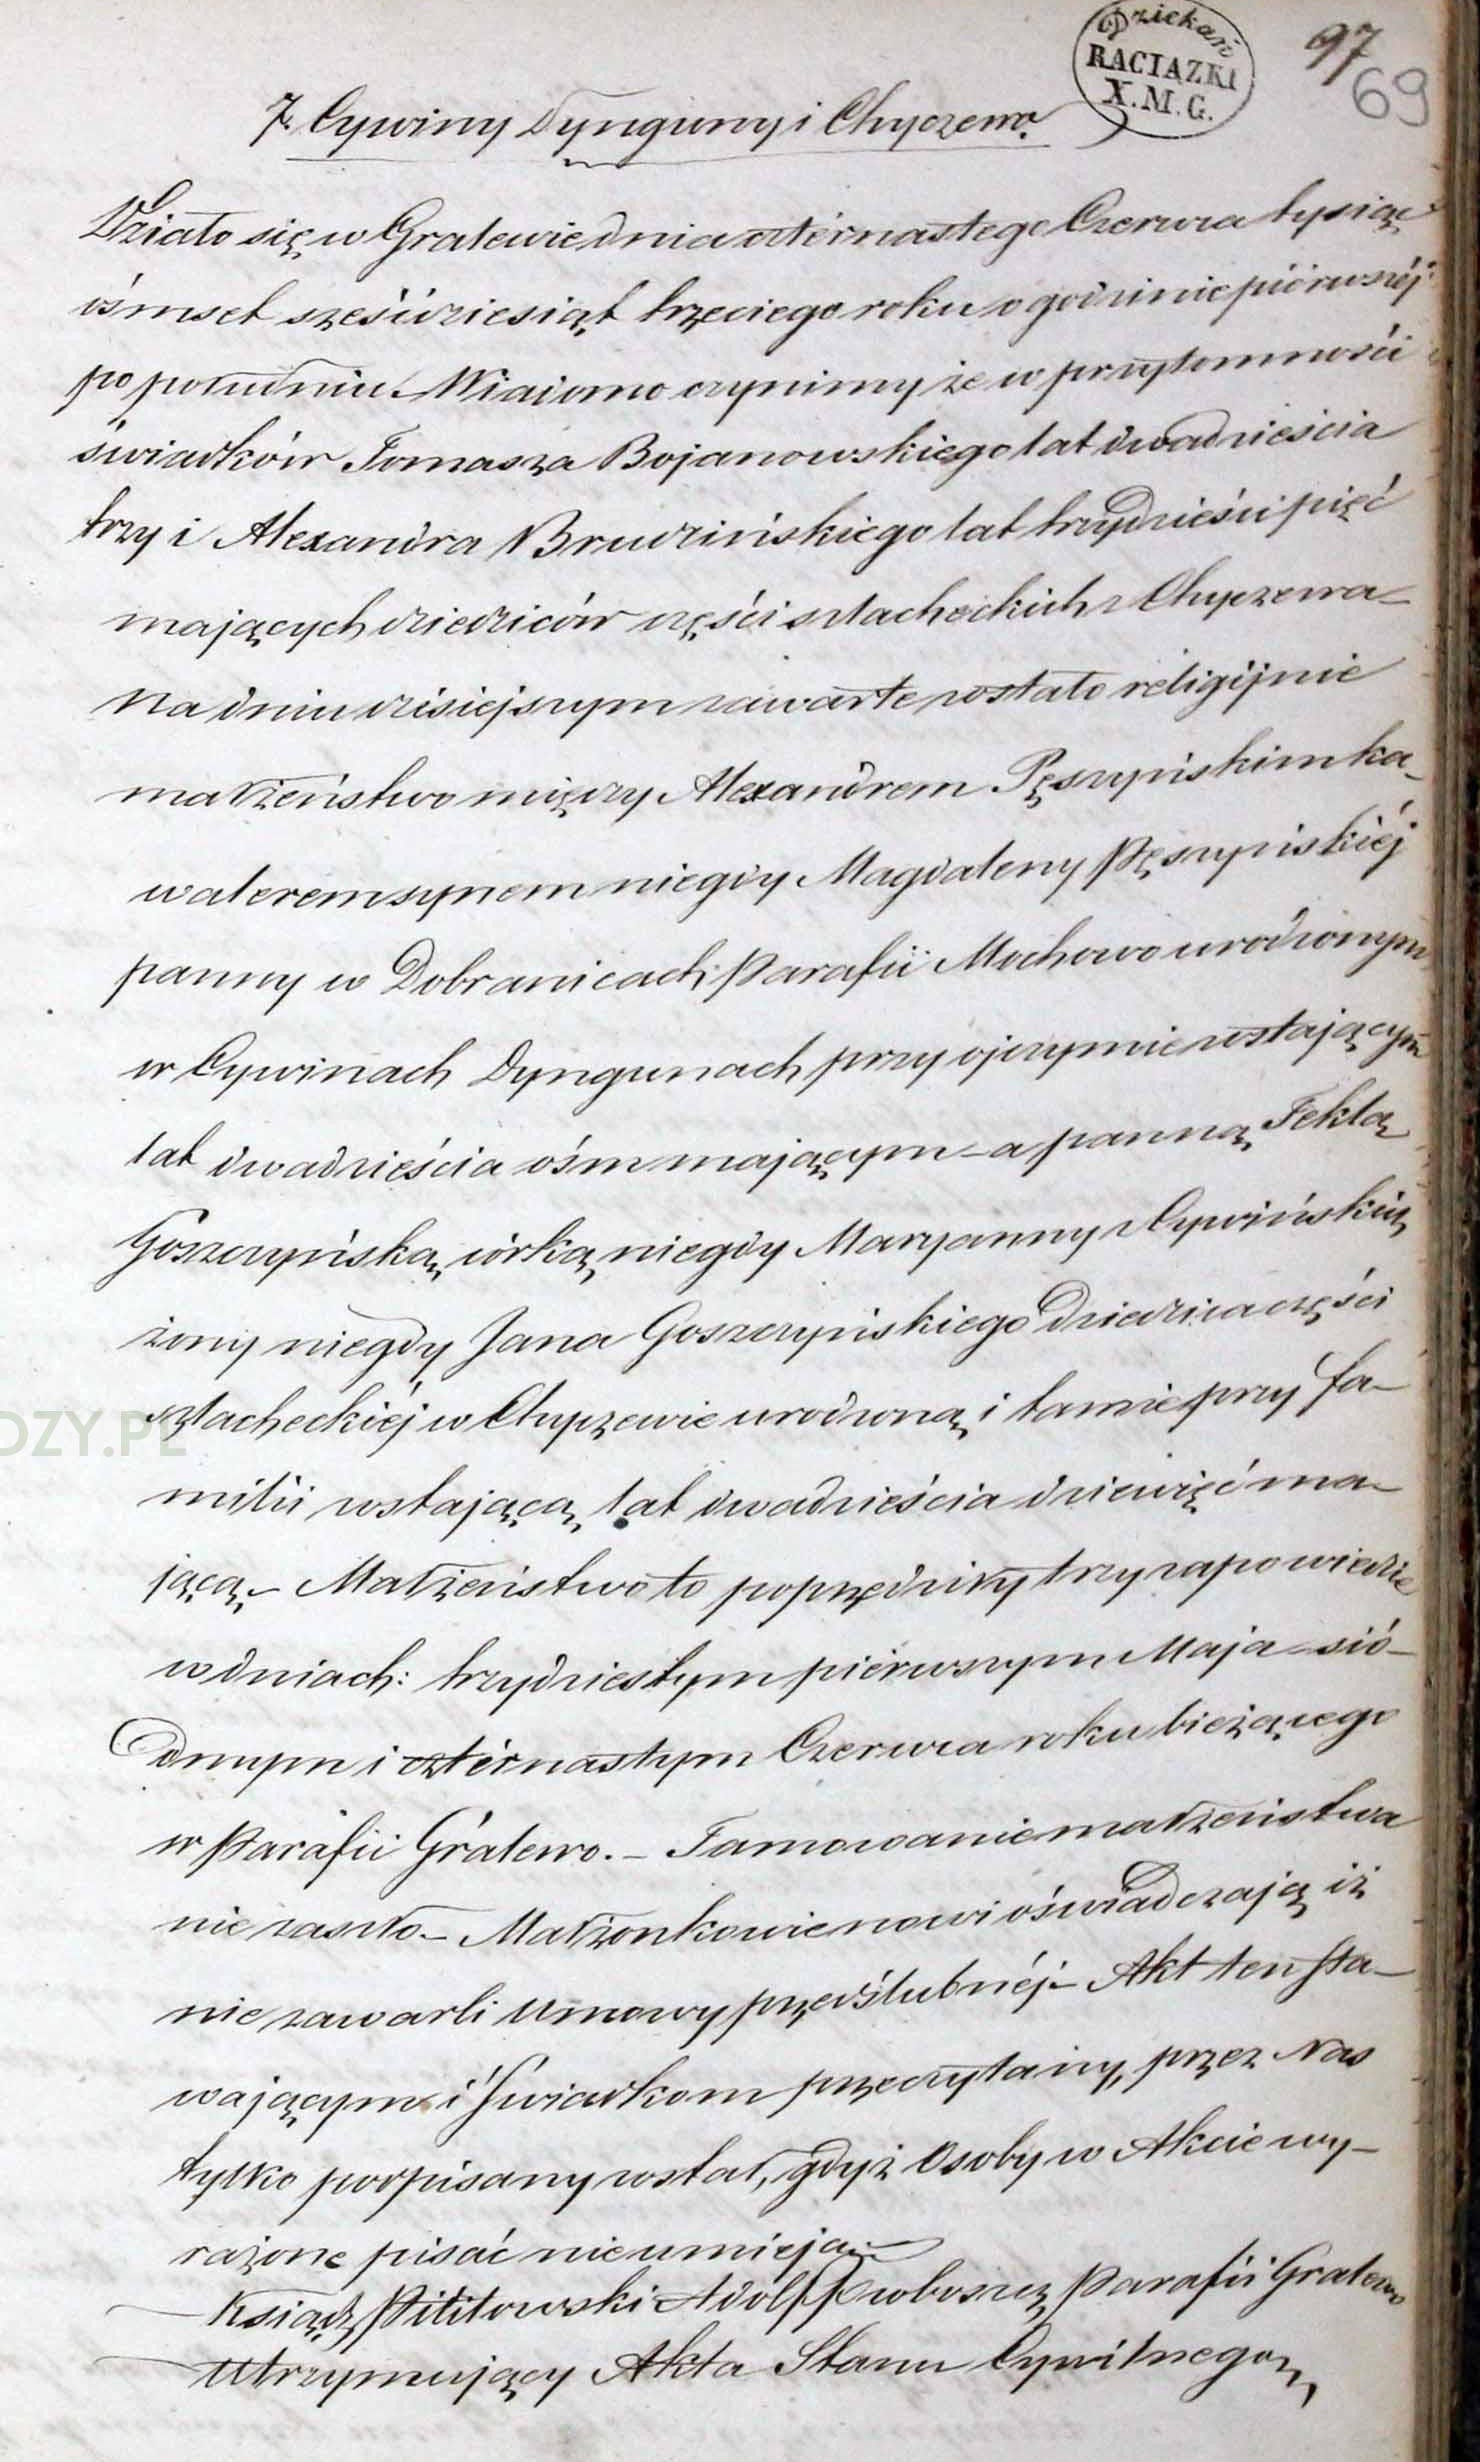 Dziekan
RACIĄZKI
X.M.G.
97
69
7. Cywiny Dynguny i Chyczewo
Działo się w Gralewie dnia czternastego Czerwca tysiąc
ośmset sześćdziesiąt trzeciego roku o godzinie piérwszéj
po południu. Wiadomo czynimy że w przytomności
świadków Tomasza Bojanowskiego lat dwadzieścia
trzy i Alexandra Brudzińskiego lat trzydzieści pięć
mających dziedziców części szlacheckich z Chyczewa –
Na dniu dzisiejszym zawarte zostało religijnie
małżeństwo między Alexandrem Pęszyńskim ka-
walerem synem niegdy Magdaleny Pęszyńskiéj
panny w Dobranicach Parafii Mochowo urodzonym
w Cywinach Dyngunach przy ojczymie zostającym
lat dwadzieścia ośm mającym – a panną Teklą
Goszczyńską, córką niegdy Maryanny z Cywińskich
żony niegdy Jana Goszczyńskiego Dziedzica części
szlacheckiéj w Chyczewie urodzoną i tamże przy fa-
milii zostającą, lat dwadzieścia dziewięć ma-
jącą. – Małżeństwo to poprzedziły trzy zapowiedzie
w dniach: trzydziestym piérwszym Maja – siό-
dmym i czternastym Czerwca roku bieżącego
w Parafii Gralewo. – Tamowanie małżeństwa
nie zaszło. – Małżonkowie nowi oświadczają iż
nie zawarli umowy przedślubnéj – Akt ten sta-
wającym i Świadkom przeczytany, przez Nas
tylko podpisany został, gdyż Osoby w Akcie wy-
rażone pisać nie umieją. –
Ksiądz Pilitowski Adolf Proboszcz Parafii Gralewo
Utrzymujący Akta Stanu Cywilnego
DZY.PL